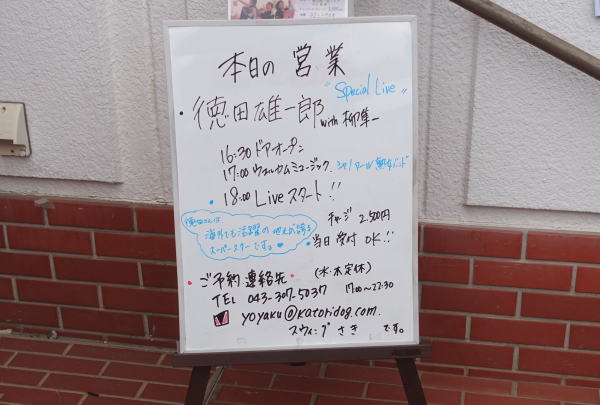 本日の営業
"Special Live"
・徳田雄一郎
with 柳隼一
16:30 ドアオープン
17:00 ウェルカムミュージック
・18:00 Live スタート!!
チャージ 2,500円
徳田さんは
海外でも活躍の地元が誇る
スーパースターです。♥
当日受付 OK!!
・ご予約連絡先・ (水・木定休)
TEL 043-307-5037 17:00~22:30
yoyaku@katoridog.com.
スウィング さき です。